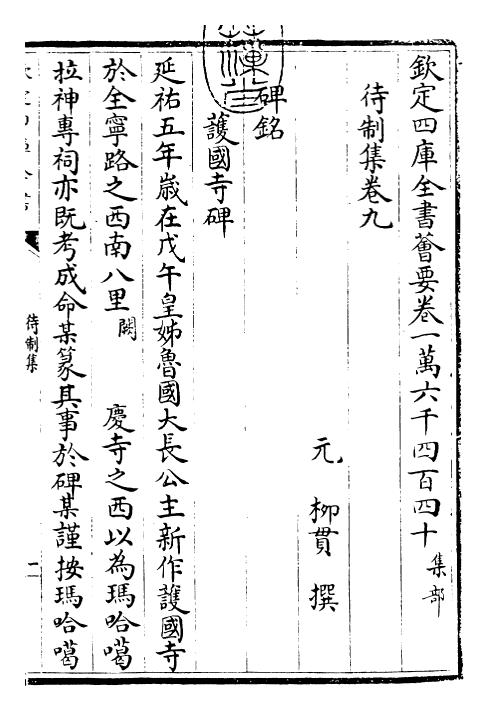 欽定四庫全書薈要卷一萬六千四百四十 集部
待制集卷九
元 柳貫 撰
碑銘
護國寺碑
延祐五年歳在戊午皇姊魯國大長公主新作護國寺
於全寧路之西南八里 闕 慶寺之西以為瑪哈噶
拉神專祠亦既考成命某篆其事於碑某謹按瑪哈噶
待制集